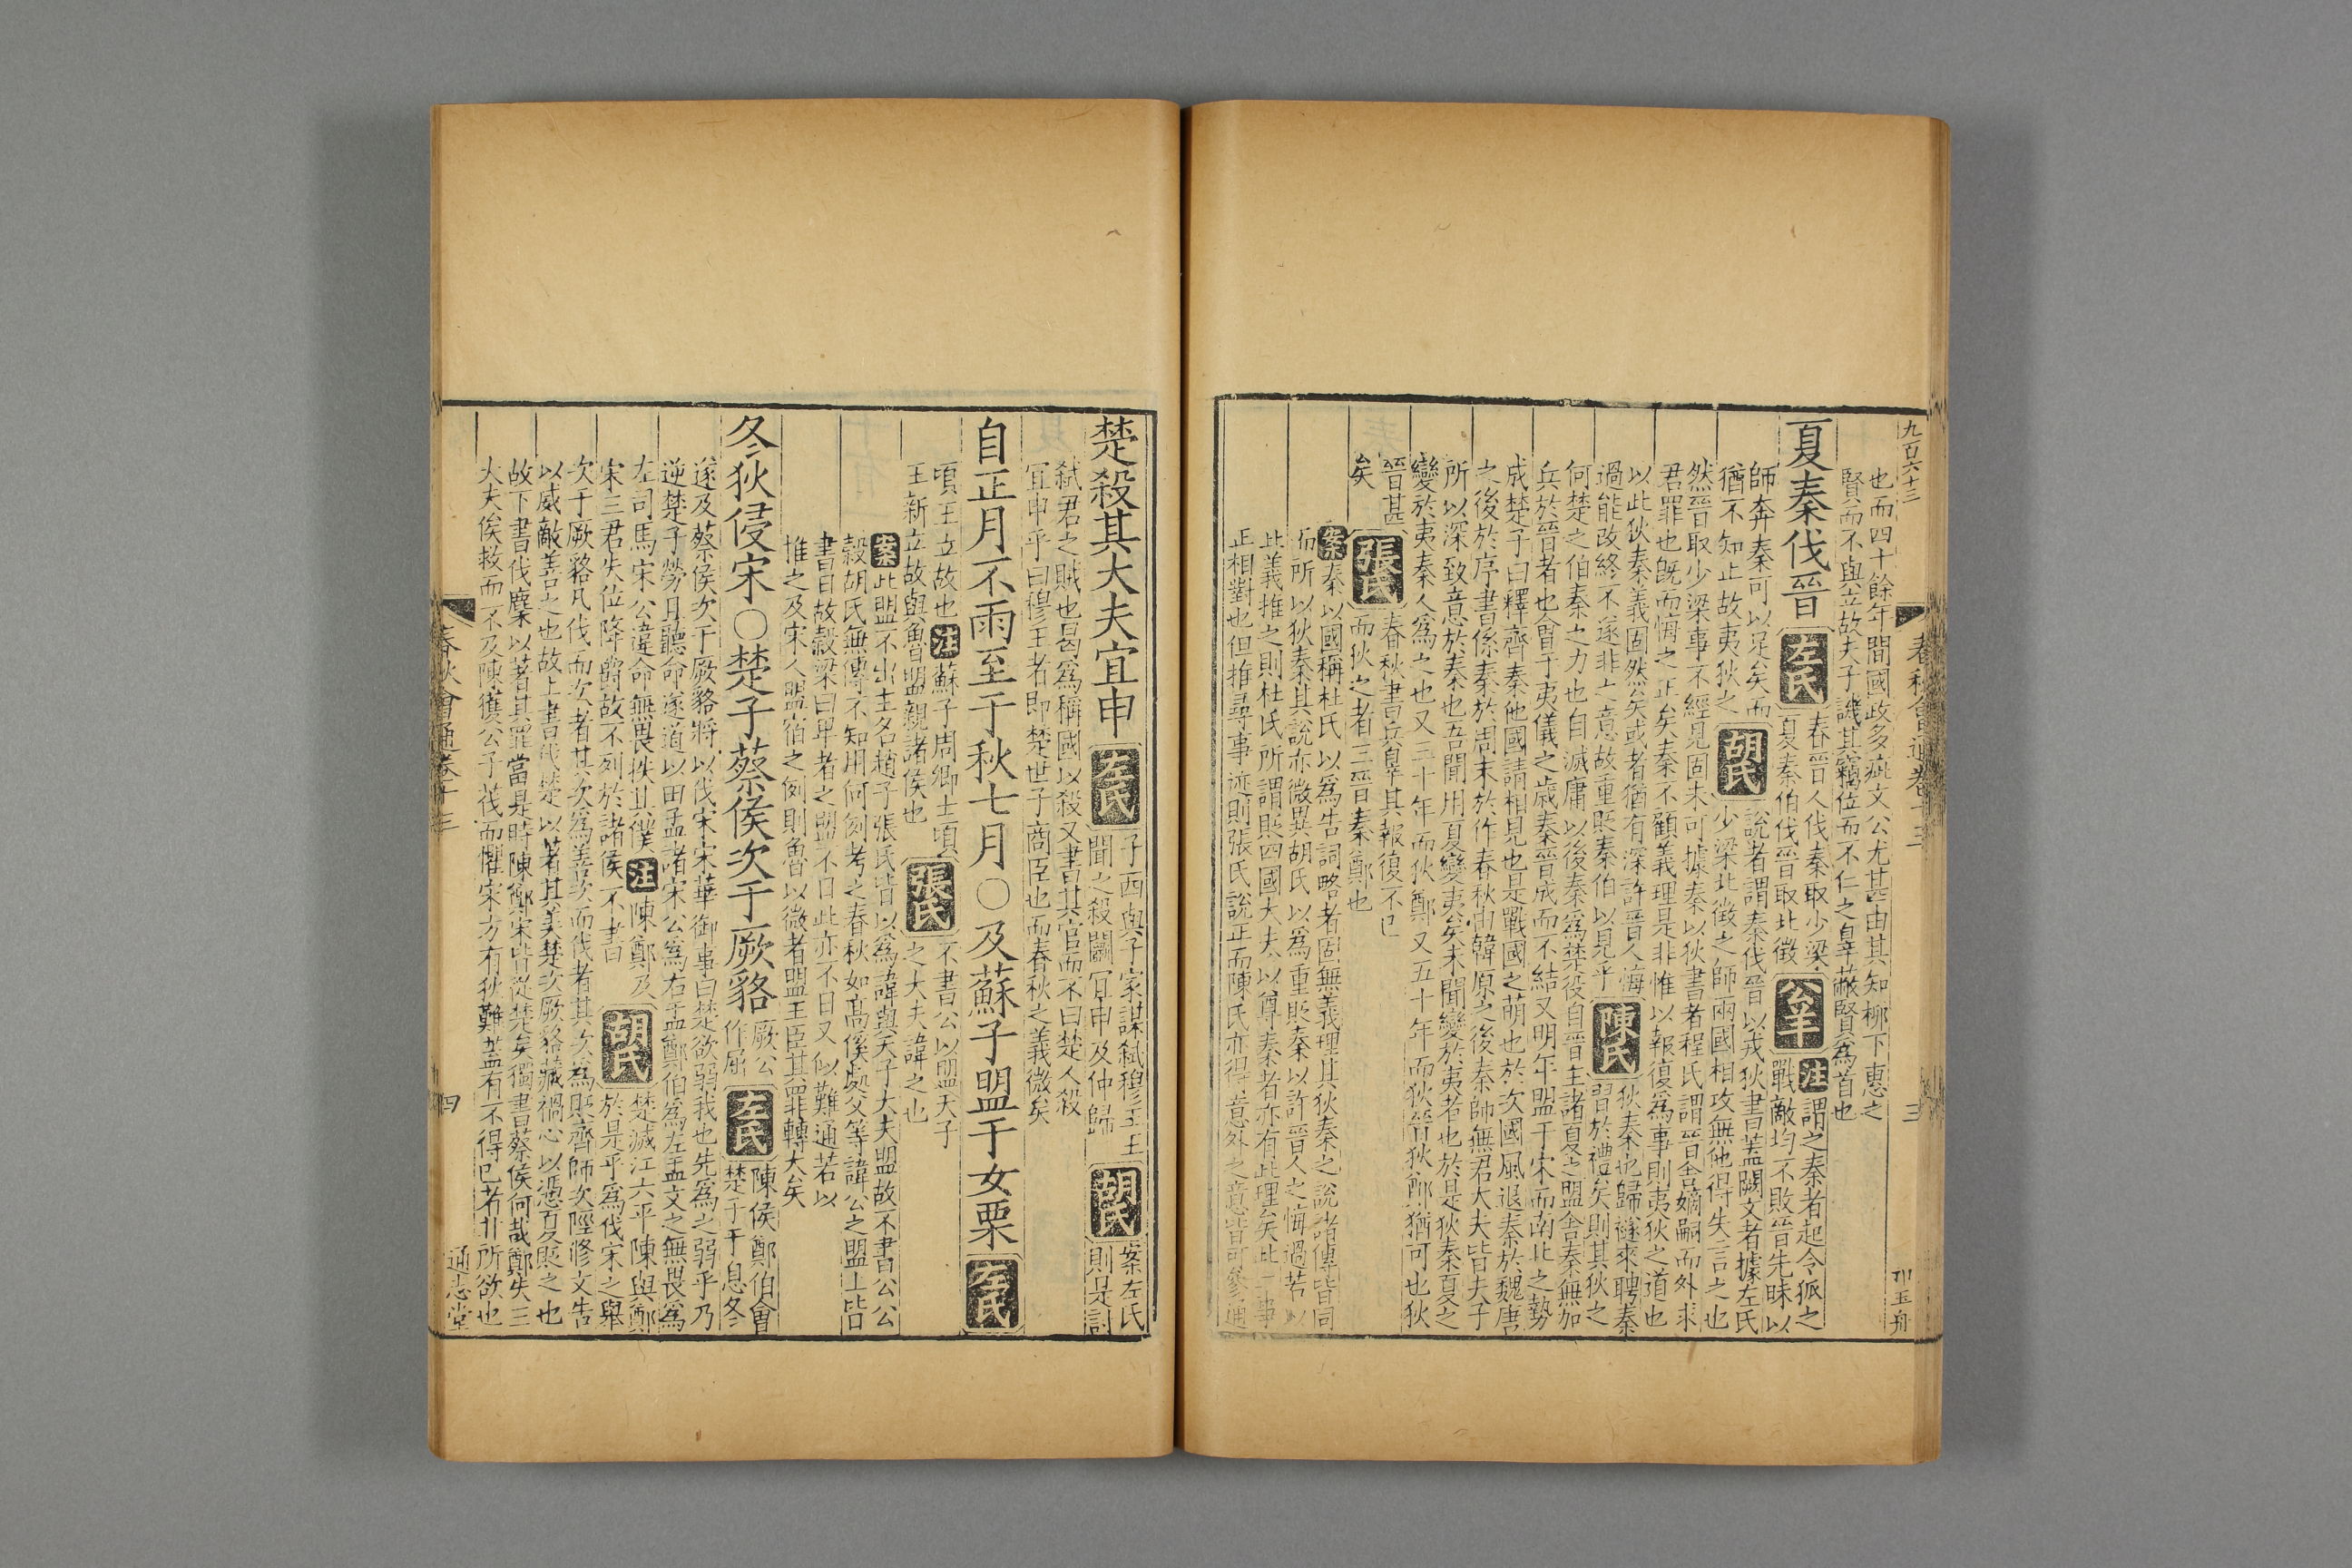 九百六十三
也而四十餘年間國政多疵文公尤甚由其知柳下惠之
賢而不與立故夫子譏其竊位而不仁之辠蔽賢爲首也
夏秦伐晉 左氏 春晉人伐秦取少梁
夏秦伯伐晉取北徵 公羊 注謂之秦者起令狐之
戰敵均不敗晉先眛以
師奔秦可以足矣而
猶不知止故夷狄之 胡氏 說者謂秦伐晉以戎狄書蓋闕文者據左氏
少梁北徵之師兩國相攻無他得失言之也
然晉取少梁事不經見固未可據秦以狄書者程氏謂晉舍嫡嗣而外求
君罪也既而悔之正矣秦不顧義理是非惟以報復爲事則夷狄之道也
以此狄秦義固然矣或者猶有深許晉人悔
過能改終不遂非之意故重貶秦伯以見乎 陳氏 狄秦也歸襚來聘秦
習於禮矣則其狄之
何楚之伯秦之力也自滅庸以後秦爲楚役自晉主諸夏之盟舍秦無加
兵於晉者也會于夷儀之歲秦晉成而不結又明年盟于宋而南北之勢
成楚子曰釋齊秦他國請相見也是戰國之萌也於次國風退秦於魏唐
之後於序書係秦於周末於作春秋由韓原之後秦帥無君大夫皆夫子
所以深致意於秦也吾聞用夏變夷矣未聞變於夷者也於是狄秦夏之
變於夷秦人爲之也又三十年而狄鄭又五十年而狄晉狄鄭猶可也狄
晉甚
矣 張氏 春秋書兵辠其報復不已
而狄之者三晉秦鄭也
案秦以國稱杜氏以爲告詞略者固無義理其狄秦之說諸傳皆同
而所以狄秦其說亦微異胡氏以爲重貶秦以許晉人之悔過若以
此義推之則杜氏所謂貶四國大夫以尊秦者亦有此理矣此二事
正相對也但推尋事迹則張氏說正而陳氏亦得意外之意皆可參通
春秋會通卷十三
三
卭玉舟
楚殺其大夫宜申 左氏 子西與子家謀弑穆王王
聞之殺鬬宜申及仲歸 胡氏 案左氏
則是討
弑君之賊也曷爲稱國以殺又書其官而不曰楚人殺
宜申乎曰穆王者即楚世子商臣也而春秋之義微矣
自正月不雨至于秋七月〇及蘇子盟于女栗 左氏
頃王立故也 注 蘇子周卿士頃
王新立故與魯盟親諸侯也 張氏 不書公以盟天子
之大夫諱之也
案此盟不出主名趙子張氏皆以爲諱與天子大夫盟故不書公公
穀胡氏無傳不知用何例考之春秋如高傒處父等諱公之盟上皆
書日故穀梁曰卑者之盟不日此亦不日又似難通若以
推之及宋人盟宿之例則魯以微者盟王臣其罪非轉大矣
冬狄侵宋〇楚子蔡侯次于厥貉 厥公
作屈 左氏 陳侯鄭伯會
楚子于息冬
遂及蔡侯次于厥貉將以伐宋宋華御事曰楚欲弱我也先爲之弱乎乃
逆楚子勞且聽命遂道以田孟諸宋公爲右盂鄭伯爲左盂文之無畏爲
左司馬宋公違命無畏抶其僕 注 陳鄭及
宋三君失位降爵故不列於諸侯不書曰 胡氏 楚滅江六平陳與鄭
於是乎爲伐宋之舉
次于厥貉凡伐而次者其次爲善次而伐者其次爲貶齊師次陘修文告
以威敵善之也故上書伐楚以著其美楚次厥貉藏禍心以憑夏貶之也
故下書伐麋以著其罪當是時陳鄭宋皆從楚矣獨書蔡侯何哉鄭失三
大夫俟救而不及陳獲公子茷而懼宋方有狄難蓋有不得已者非所欲也
春秋會通卷十三
四
通志堂